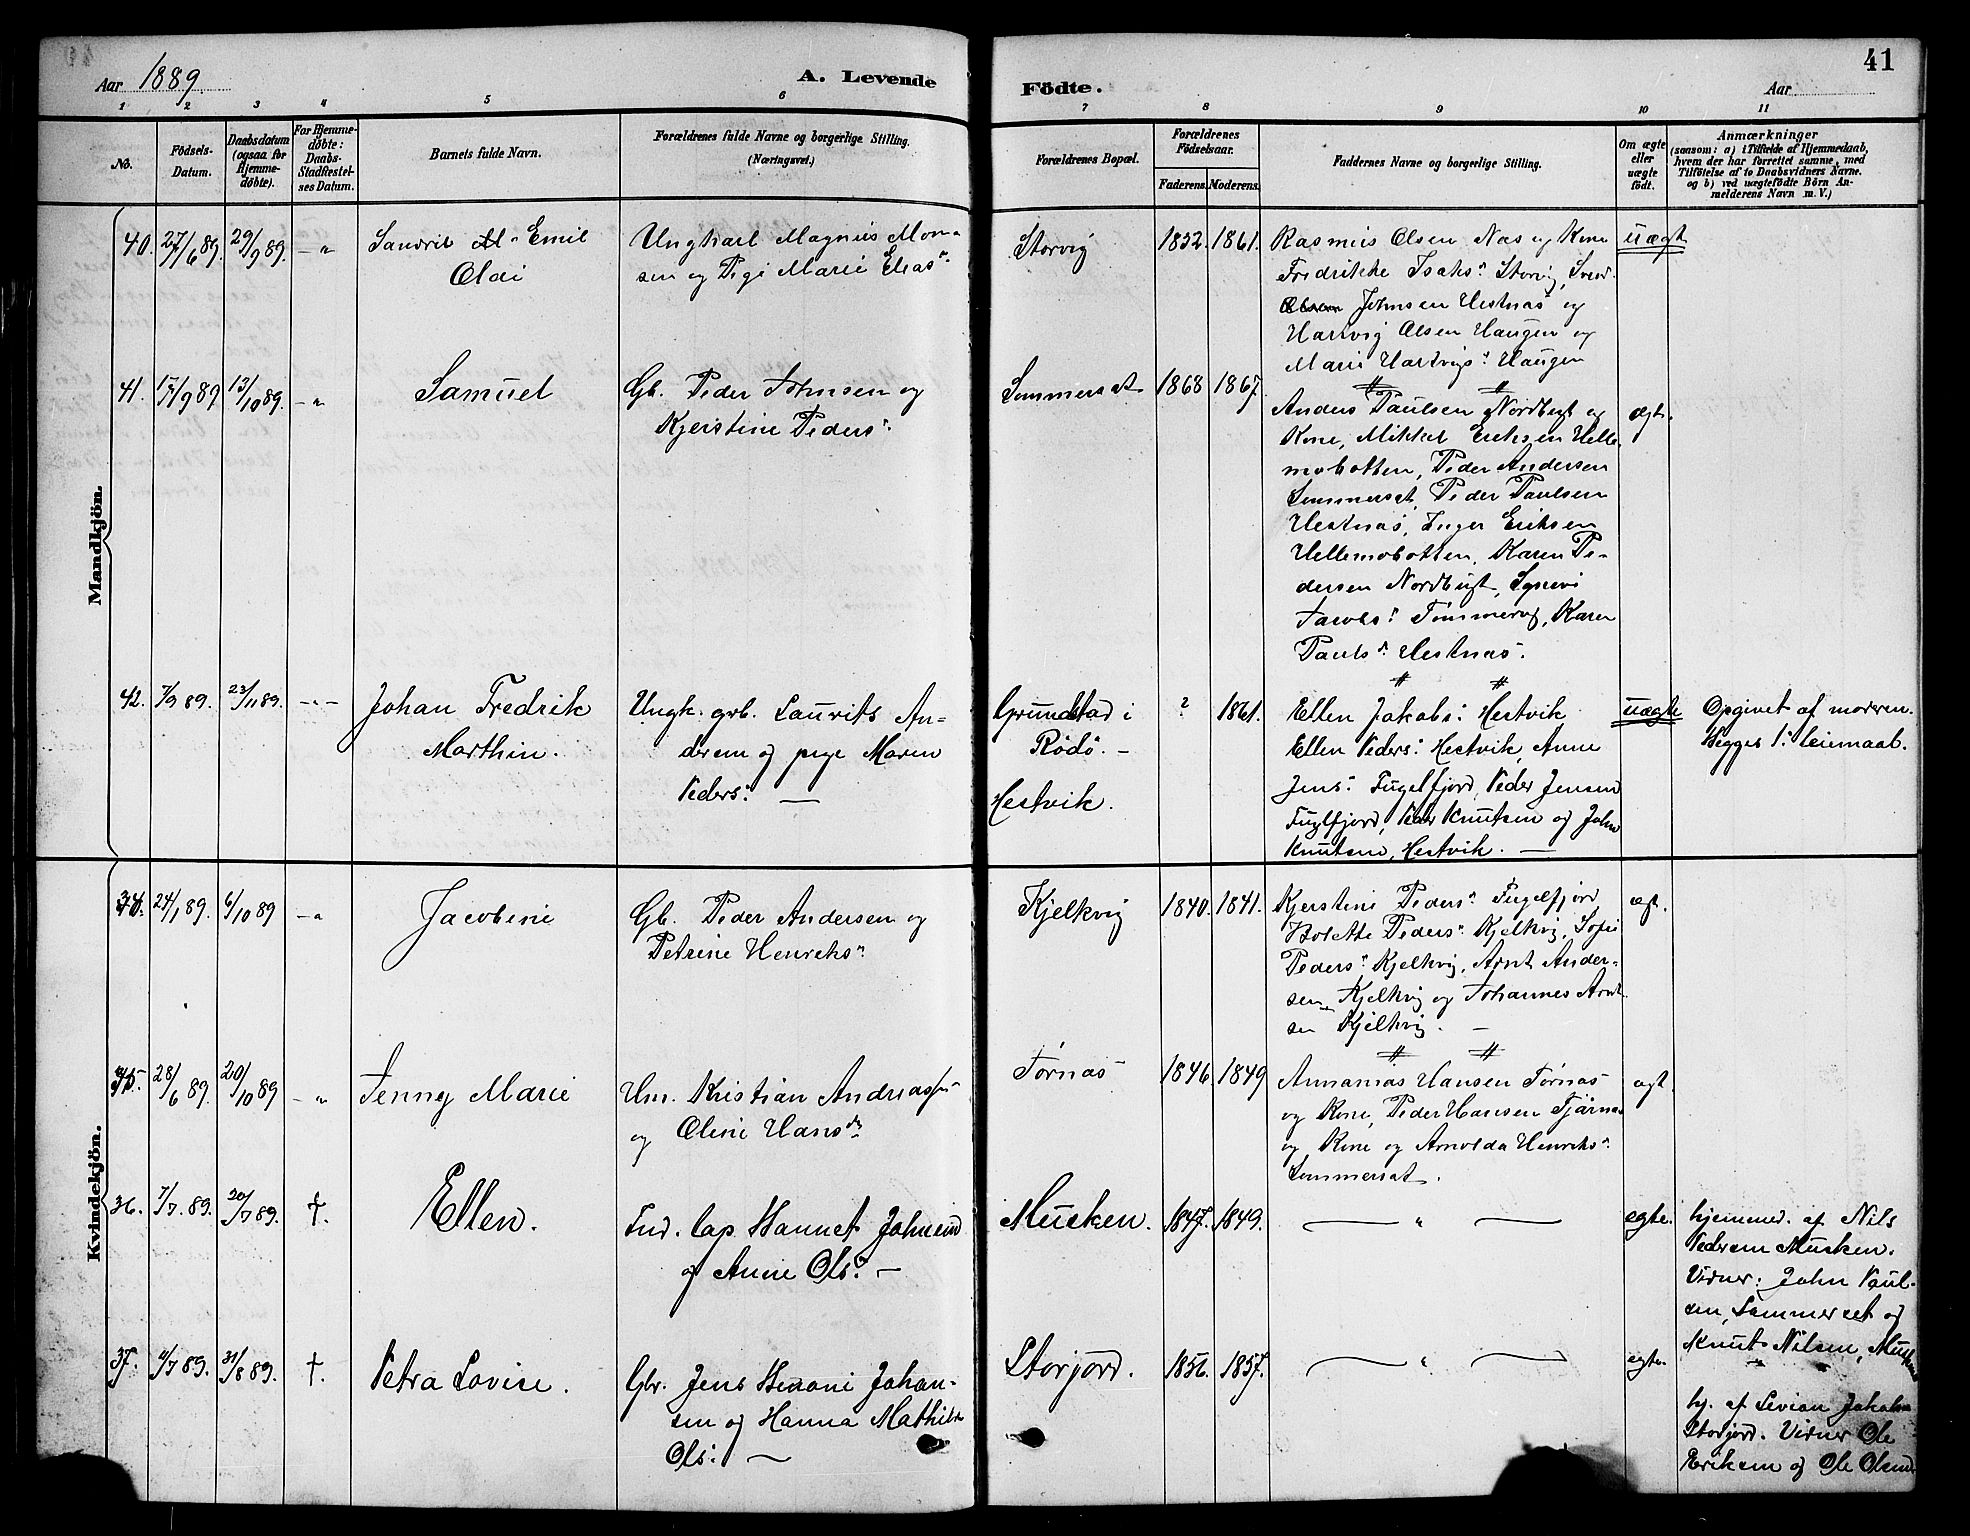 41
Aar 1889.
A. Levende
Födte.
Aar
1 2 3 4 5 6 7 8 9 10 11
No.
Födsels-
Datum.
Daabsdatum
(ogsaa for
Hjemme-
döbte).
For Hjemme-
döbte:
Daabs-
Stadfæstel-
ses Datum.
Barnets fulde Navn.
Forældrenes fulde Navne og borgerlige Stilling.
(Næringsvei.)
Forældrenes Bopæl.
Forældrenes
Födselsaar.
Faderens. Moderens.
Faddernes Navne og borgerlige Stilling.
Om ægte
eller
uægte
födt.
Anmærkninger
(saasom: a) i Tilfælde af Hjemmedaab,
hvem der har forrettet samme, med
Tilföielse af to Daabsvidners Navne.
og b) ved uægtefödte Börn An-
melderens Navn m. V.)
Mandkjön.
40. 27/6 89. 29/9 89. -"
Sandrik M. Emil
Olai
Ungkarl Magnus Mon-
sen og Pige Marie Elias.
Storvig
1852. 1861.
Rasmus Olsen Næs og Kone
Fredrikke Isaks. Storvig,
Johnsen Hestnæs og
Hartvig Olsen Haugen og
Marie Hartvigs. Haugen
uægt
41. 17/9 89 13/10 89. -"
Samuel
Gb. Peder Johnsen og
Kjerstine Peders.
Sommersæt
1868 1867.
Anders Paulsen Nordbugt og
Kone, Mikkel Eriksen Helle-
mobotten, Peder Andersen
Sommersæt, Peder Paulsen
Hestnæs, Inger Eriksen
Hellemobotten, Karen Pe-
dersen Nordbugt, Synevi
Jacobs. Tömmervig, Karen
Pauls. Hestnæs.
ægt.
42. 7/9 89. 23/11 89. -"-
Johan Fredrik
Marthin.
Ungk. grb. Laurits An-
dersen og pige Maren
Peders. —
Grundstad i
Rödö. -
Hestvik.
? 1861.
Ellen Jakobs. Hestvik
Ellen Peders. Hestvik, Anne
Jens. Fugelfjord, Peder Jensen
Fuglfjord, Peder Knutsen og John
Knutsen, Hestvik. —
uægte
Opgivet af moderen.
Begges 1. leiemaal.
Kvindekjön.
34. 24/1 89. 6/10 89 -"
Jacobine
Gb. Peder Andersen og
Petrine Henriks.
Kjelkvig
1840. 1841.
Kjerstine Peders. Fugelfjord
Bolette Peders. Kjelkvig, Sofie
Peders. Kjelkvig, Arnt Ander-
sen Kjelkvig og Johannes Arnt-
sen Kjelkvig. —
ægt.
35. 28/6 89. 20/10 89 -"
Jenny Marie
Hm. Kristian Andreassen
og Oline Hans.
Törnæs
1846 1849
Annanias Hansen Törnæs
og Kone, Peder Hansen Tjärnæs
og Kone og Arnolda Henriks.
Sommersæt.
ægt.
36. 7/7. 89. 20/7 89. †.
Ellen.
Ind. Lap. Hannet Johnsen
og Anne Ols. —
Musken.
1847. 1849.
— " —
egte.
hjemmed. af Nils
Pedersen Musken.
Vidner: John Paul-
sen, Sommerset og
Knut Nilsen, Musken
37. 11/7 89. 31/8 89. †.
Petra Lovise.
Gbr. Jens Benoni Johan-
sen og Hanna Mathilde
Ols. —
Storjord.
1856. 1857.
— " —
egte.
hj. af Jakobsen
Storjord. Vidner Ole
Eriksen og Ole Olsen